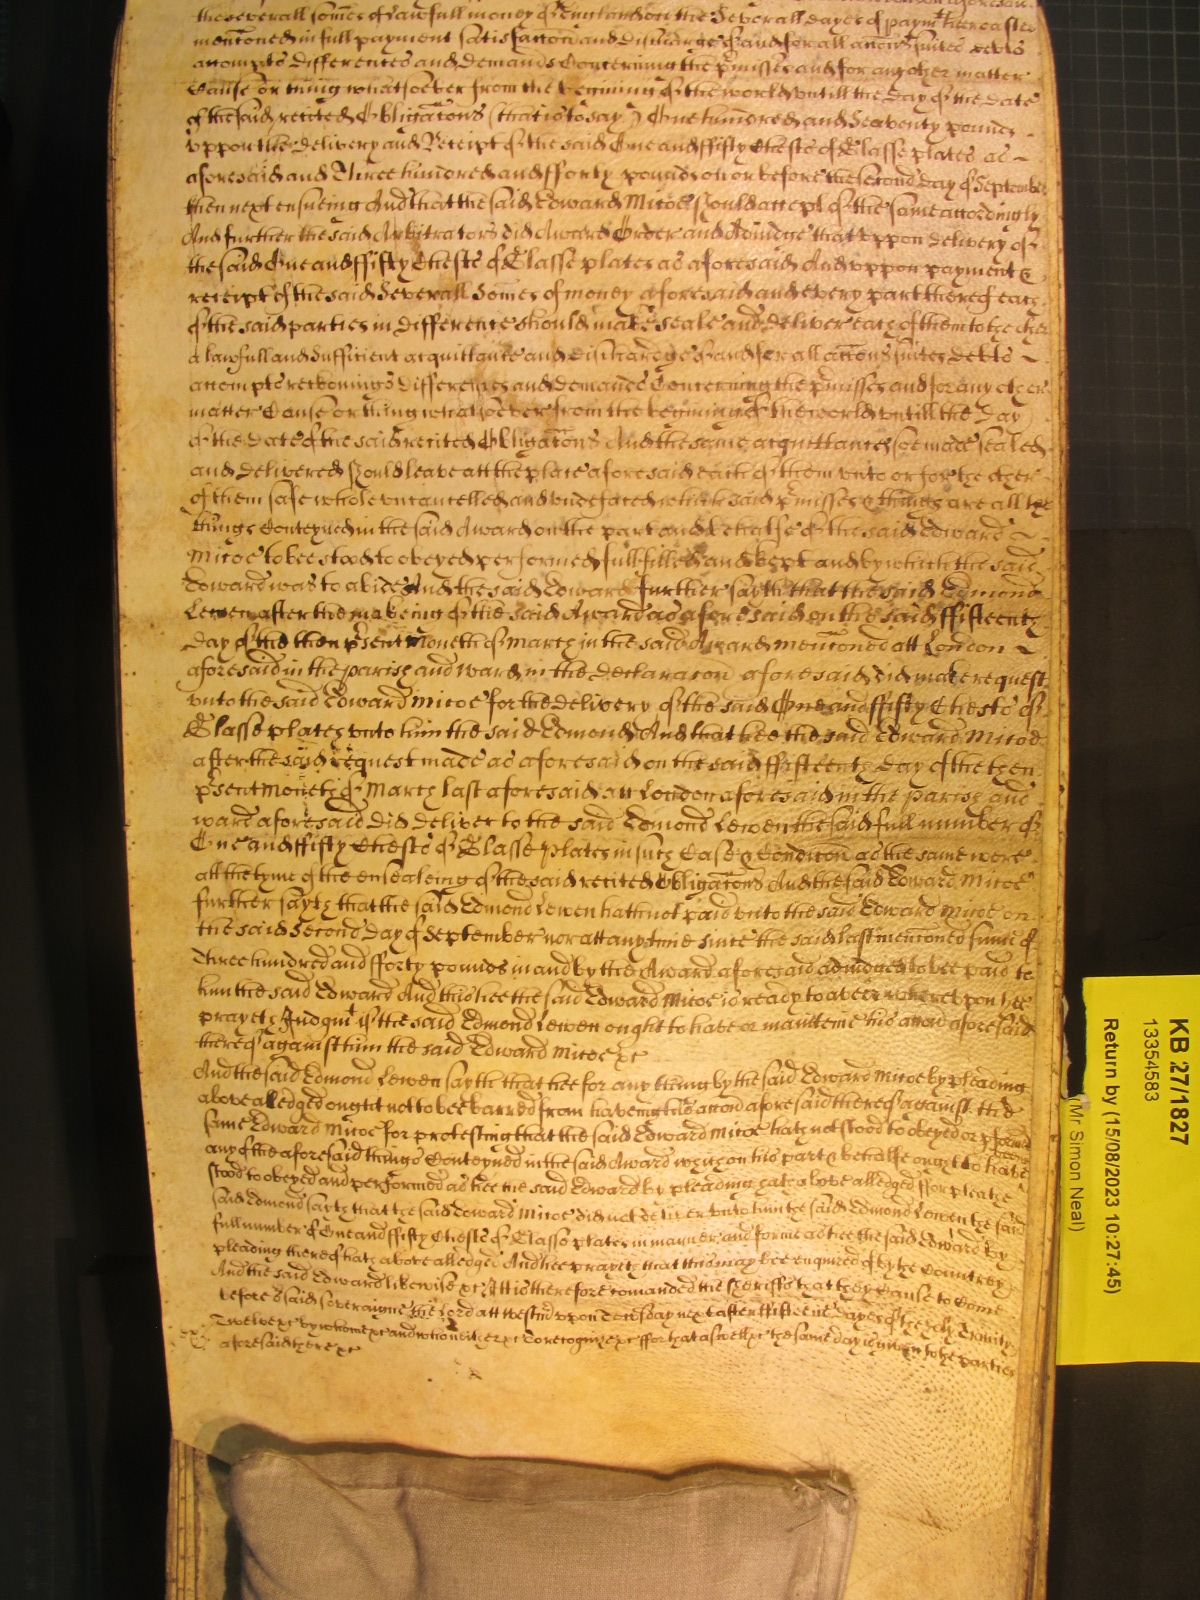 the severall somes of lawfull money of England on the severall dayes of paymt hereafter
mentioned in full payment satisfaccon and discharge of and for all accons suites debts
accompts differences and demands Concerning the pmisses and for any other matter
Cause or thing whatsoever from the begining of the world untill the day of the date
of the said recited Obligatons (that is to say) One hundred and Seaventy pounds
uppon the delivery and Receipt of the said One and ffifty Chests of Glasse plates as
aforesaid and Three hundred and fforty pounds on or before the second day of September
then next ensueing And that the said Edward Micoe should accept of the same accordingly
And further the said Arbitrators did Award Order and Adiudge that uppon delivery of
the said One and ffifty Chests of Glasse plates as aforesaid And uppon payment &
receipt of the said Severall Somes of money aforesaid and every part thereof each
of the said parties in difference should make seale and deliver each of them to the other
a lawfull and sufficient acquittance and discharge of and for all accons suites debts
accompts reckonings differences and demands Concerning the pmisses and for any other
matter Cause or thing whatsoever from the begining of the world untill the day
of the date of the said recited Obligatons And the same acquittances soe made sealed
and delivered should leave att the place aforesaid each of them unto or for the other
of them safe whole uncancelled and undefaced which said pmisses & things are all the
things Conteyned in the said Award on the part and behalfe of the said Edward
Micoe to bee stood to obeyed performed fullfilled and kept and by which the said
Edward was to abide And the said Edward further sayth that the said Edmond
Lewen after the makeing of the said Award as aforesaid on the said ffifteenth
day of the then psent Moneth of March in the said Award mentioned att London
aforesaid in the parish and ward in the declaracon aforesaid did make request
unto the said Edward Micoe for the delivery of the said One and ffifty Chests of
Glasse plates unto him the said Edmond And that hee the said Edward Micoe
after the said request made as aforesaid on the said ffifteenth day of the then
psent Moneth of March last aforesaid att London aforesaid in the parish and
ward aforesaid did deliver to the said Edmond Lewen the said full number of
One and ffifty Chests of Glasse plates in such Case & Condicon as the same were
att the tyme of the ensealeing of the said recited Obligatons And the said Edward Micoe
further sayth that the said Edmond Lewen hath not paid unto the said Edward Micoe on
the said Second day of September nor att any time since the said last mencioned summ of
Three hundred and fforty pounds in and by the Award aforesaid adiudged to bee paid to
him the said Edward And this hee the said Edward Micoe is ready to averr whereupon hee
prayeth Iudgmt if the said Edmond Lewen ought to have or mainteine his accon aforesaid
thereof against him the said Edward Micoe &c
And the said Edmond Lewen sayth that hee for any thing by the said Edward Micoe by pleading
above alledged ought not to bee barred from haveing his accon aforesaid thereof against the
same Edward Micoe for protesting that the said Edward Micoe hath not stood to obeyed or pformed
any of the aforesaid things Conteyned in the said Award which on his part & behalfe ought to have been
stood to obeyed and performed as hee the said Edward by pleading hath above alledged ffor plea the
said Edmond sayth that the said Edward Micoe did not deliver unto him the said Edmond Lewen the said
full number of One and ffifty Chests of Glasse plates in manner and forme as hee the said Edward by
pleading thereof hath above alledged And hee prayeth that this may bee enquired of by the Countrey
And the said Edward likewise &c It is therefore comanded the Sheriffs that they Cause to Come
before or said soveraigne the Lord att Westmr upon Tuesday next after ffifteene dayes of the holy Trinity
Twelve &c by whome &c and who neither &c to recognize &c ffor that aswell &c the same day is given to the parties
aforesaid there &c
KB 27/1827
13354583
Return by (15/08/2023 10:27:45)
(Mr Simon Neal)